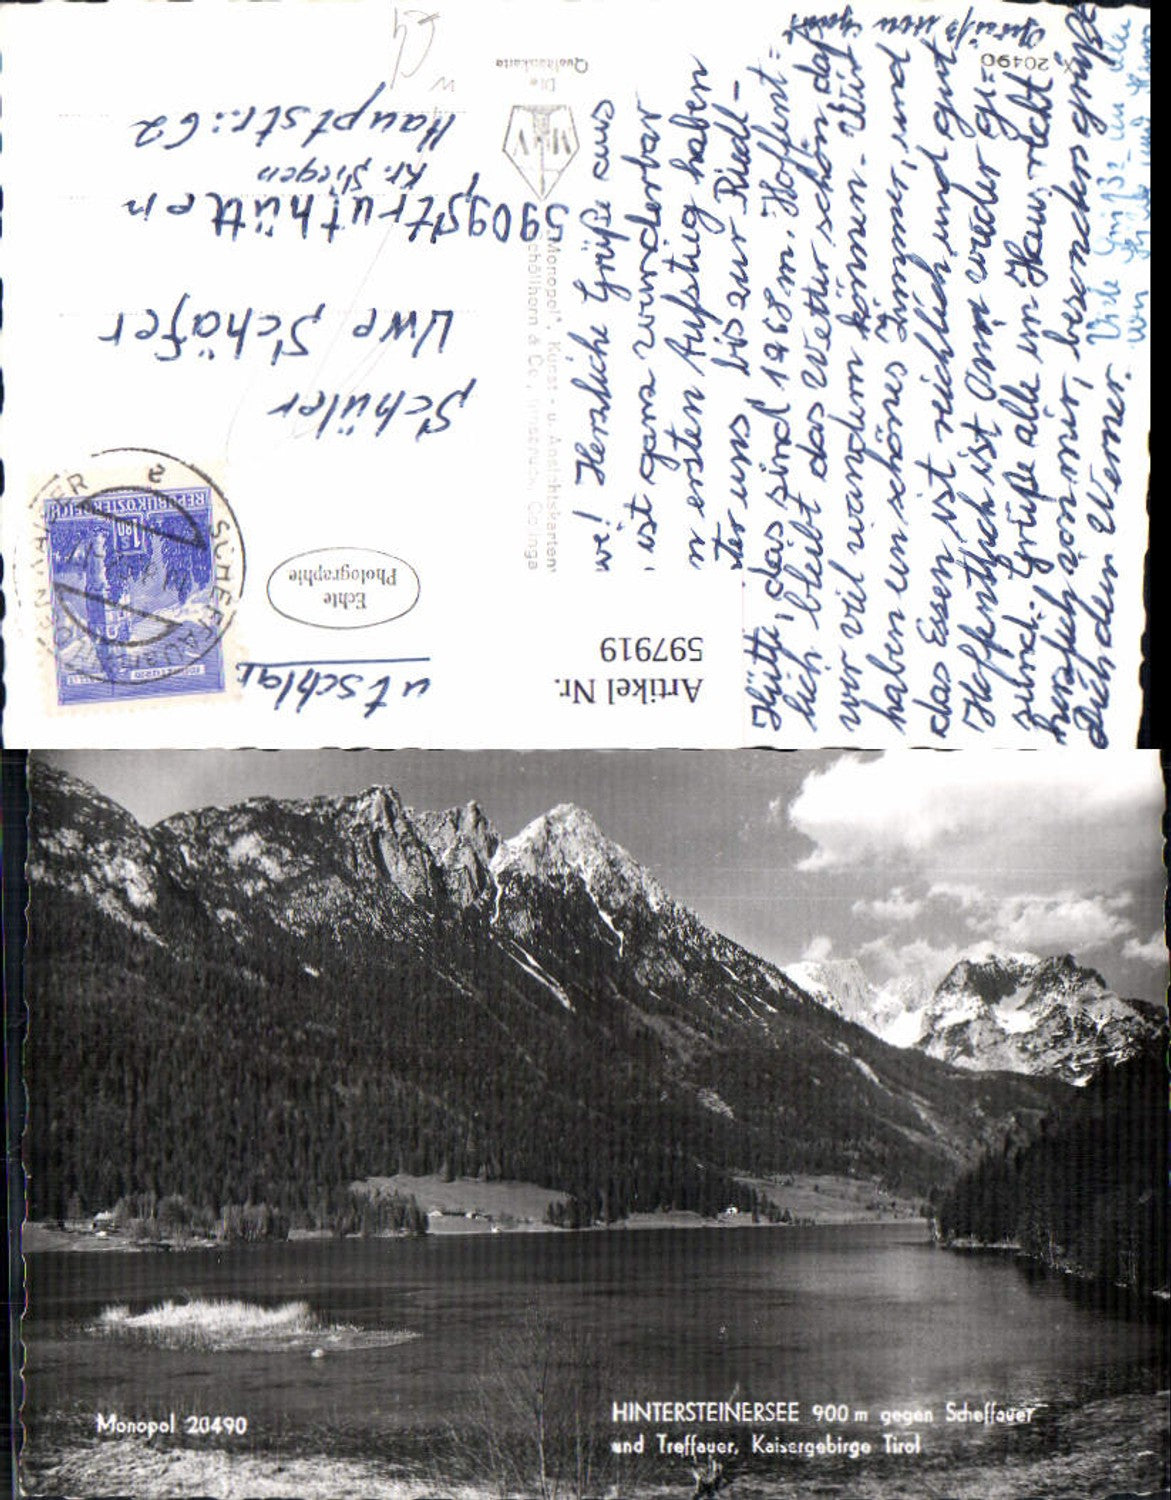 Herzliche Grüße aus
ist ganz wunderbar
ersten Aufstieg haben
uns bis zur Riedl-
Hütte, das sind 1968 m. Hoffent=
lich bleibt das Wetter schön, daß
wir viel wandern können. Wir
haben ein schönes Zimmer, und
das Essen ist reichlich und gut
Hoffentlich ist Omi wieder ge-
sund. Grüße alle im Haus recht
herzlich von mir, besonders grüßt
Dich dein Werner.
Viele Grüße
Die
Qualitätskarte
MKV
"Monopol", Kunst- u. Ansichtskarten
20490
Schüler
Uwe Schäfer
5909 Struthütten
Kr. Siegen
Hauptstr.: 62
Echte
Photographie
Artikel Nr.
597919
REPUBLIK ÖSTERREICH
S 1.80
SCHEFFAU
Monopol 20490
HINTERSTEINERSEE 900 m gegen Scheffauer
und Treffauer, Kaisergebirge Tirol